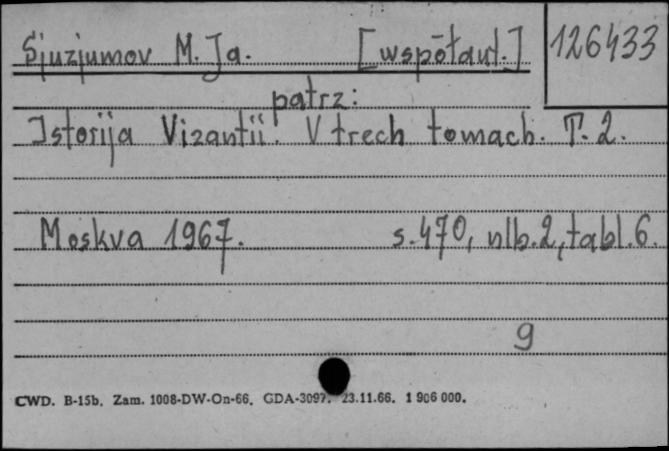 Sjuzjumov M. Ja. [współaut.] 126433
patrz:
Istorija Vizantii. V trech tomach. T. 2.
Moskva 1967. s. 470, nlb. 2, tabl. 6.
9
CWD. B-15b. Zam. 1008-DW-On-66. GDA-3097. 23.11.66. 1 906 000.